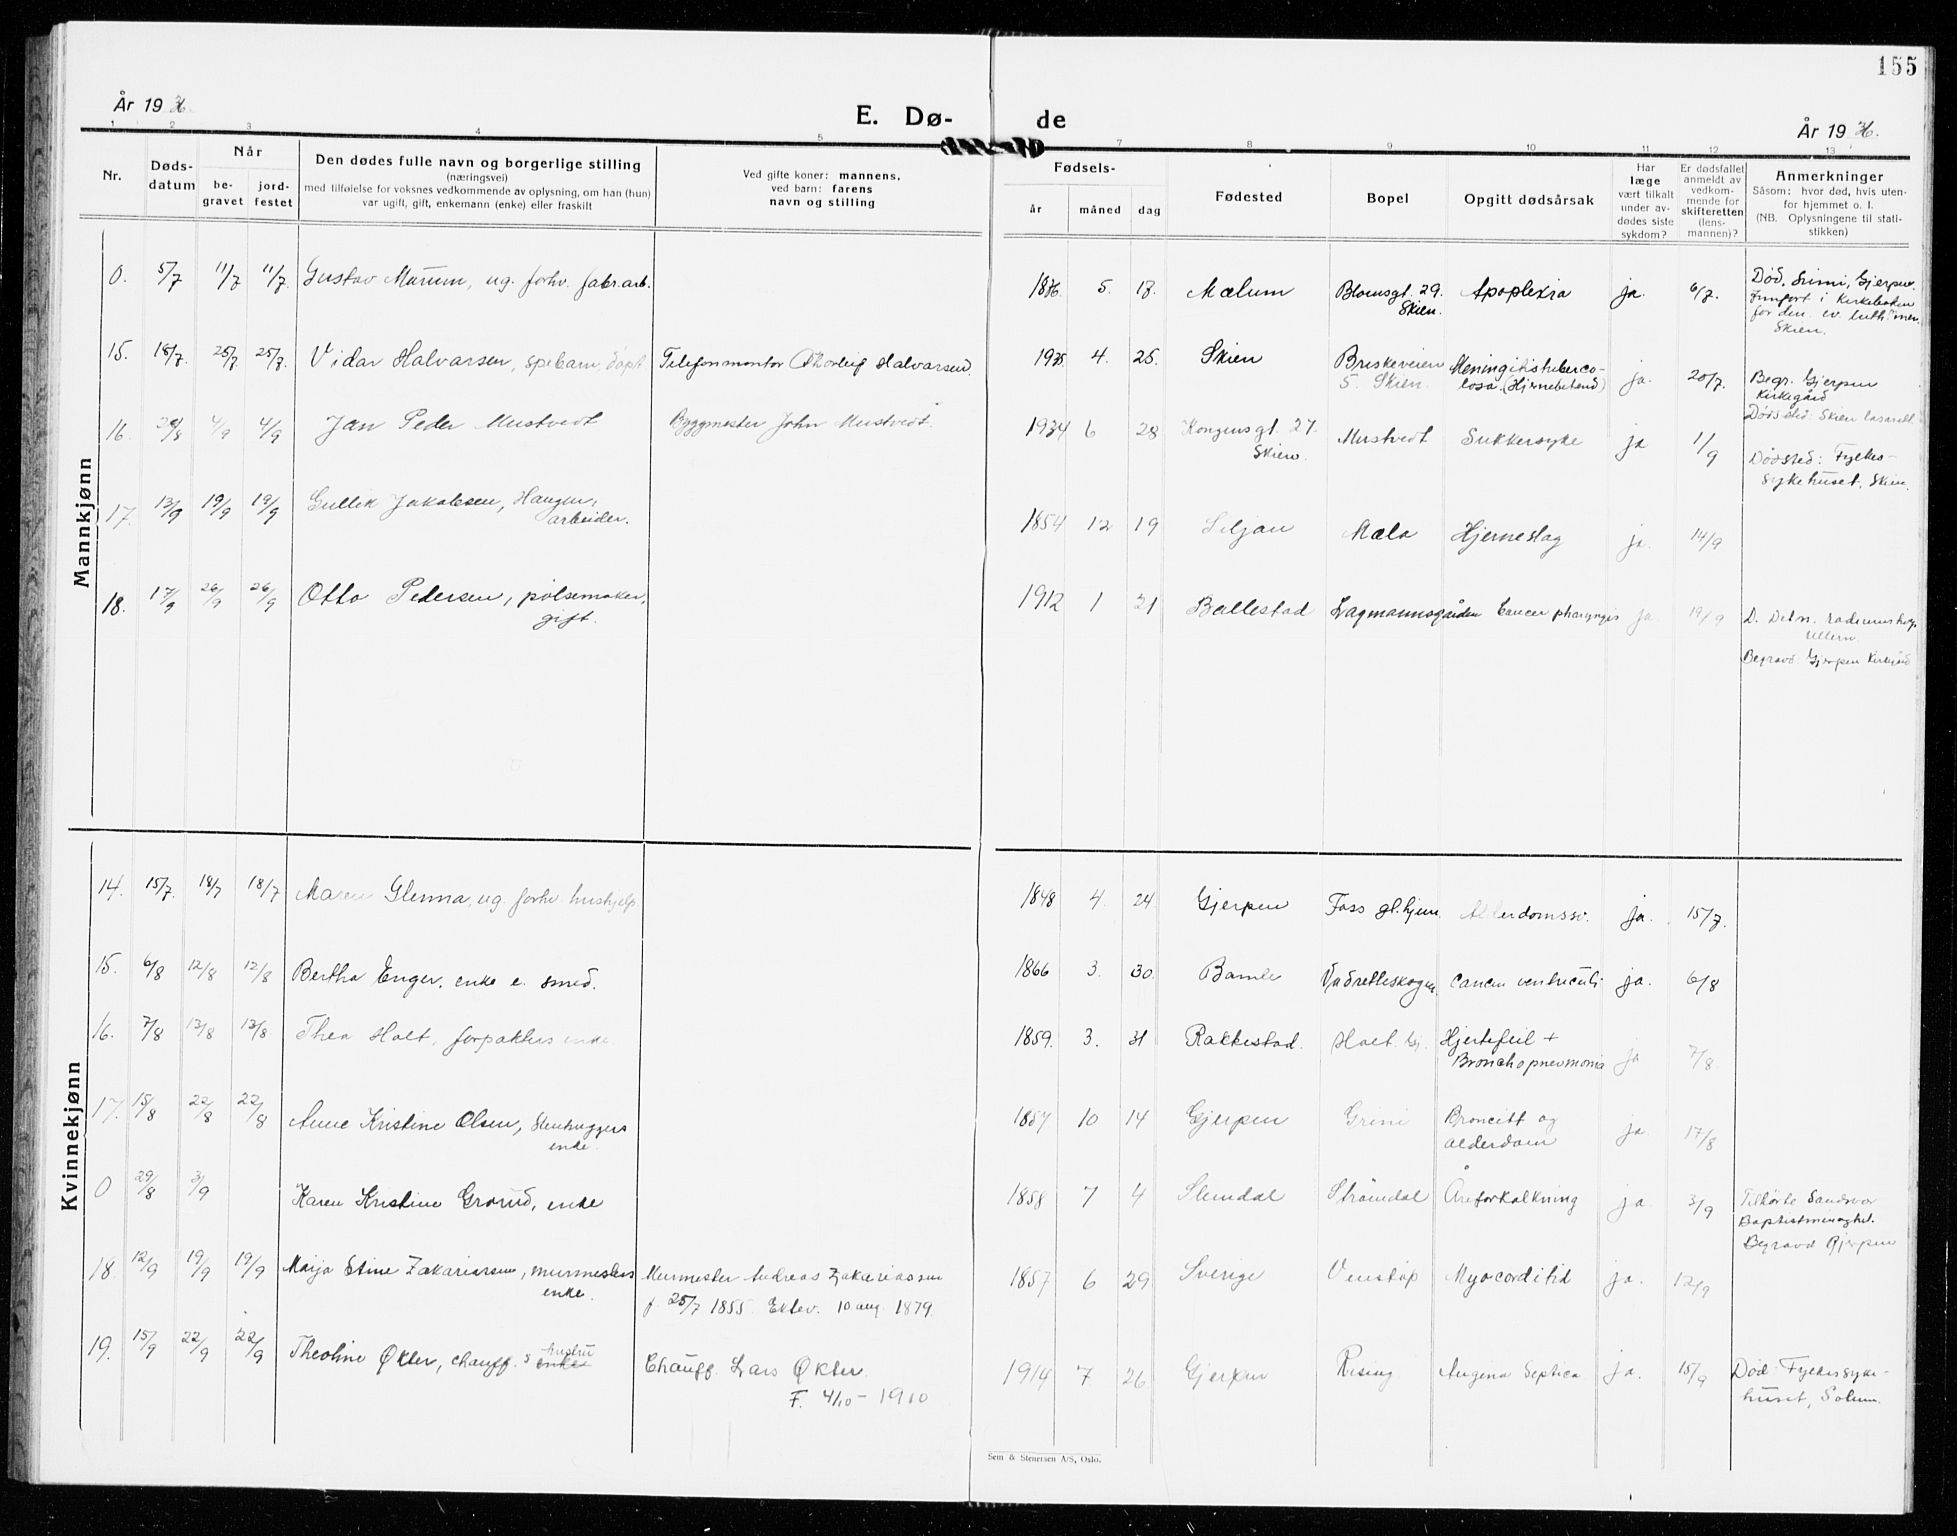 155
År 19
E. Dø- de
År 19
1 2 3 4 5 7 8 9 10 11 12 13
Nr. Døds-datum Når be-gravet jord-festet
Den dødes fulle navn og borgerlige stilling
(næringsvei)
med tilføielse for voksnes vedkommende av oplysning, om han (hun)
var ugift, gift, enkemann (enke) eller fraskilt
Ved gifte koner: mannens,
ved barn: farens
navn og stilling
Fødsels- år måned dag
Fødested
Bopel
Opgitt dødsårsak
Har læge vært tilkalt under av-dødes siste sykdom?
Er dødsfallet anmeldt av vedkom-mende for skifteretten (lens-mannen)?
Anmerkninger
Såsom: hvor død, hvis uten-
for hjemmet o. l.
(NB. Oplysningene til stati-
stikken)
Mannkjønn
0. 5/7 11/7 11/7. Gustav Mærum, ug. forhv. fabr.arb. 5. 18. Mælum Blomsgt. 29. Skien. Apoplexia ja. 6/7. Død, Gjerpen.
i
for den ev. luth.
Skien.
15. 18/7. 25/7. 25/7. Vidar Halvarsen, spebarn, døpt Telefonmontør Thorleif Halvarsen. 1935 4. 25. Skien Briskeveien 5. Skien. Meningitis tuberco-losa. (Hjernebetend) ja. 20/7. Begr. Gjerpen
Kirkegård
Dødssted Skien lasarett.
16. 29/8 4/9 4/9 Jan Peder Mustvedt Byggmester John Mustvedt. 1934 6 28 Kongensgt. 27. Skien. Mustvedt Sukkersyke ja 1/9 Dødsted: Fylkes-
sykehuset, Skien.
17. 13/9 19/9 19/9 Gullik Jakobsen, Haugen, arbeider. 1854 12 19 Siljan Mæla Hjerneslag ja. 14/9
18. 17/9 26/9 26/9 Otto Pedersen, pølsemaker, gift. 1912 1 21 Ballestad Lagmannsgården Cancer pharyngis ja 19/9 D. Det n. radiumshosp.
Ullern.
Begravd Gjerpen Kirkegård
Kvinnekjønn
14. 15/7. 18/7 18/7 Maren Glenna, ug. forhv. hushjelp 1848 4. 24. Gjerpen Foss gl.hjem. Alderdomssv. ja. 15/7.
15. 6/8 12/8 12/8 Bertha Enger, enke e. smed. 1866 3. 30. Bamle Vadretteskogen. Cancer ventriculi ja. 6/8
16. 7/8 13/8 13/8 Thea Holt, forpakters enke. 1859. 3. 31 Rakkestad. Holt. Gj. Hjertefeil + Bronchopneumonia ja 7/8.
17. 15/8 22/8 22/8 Anne Kristine Olsen, Stenhuggers enke. 1857 10 14 Gjerpen Grini Broncitt og alderdom ja. 17/8
0 29/8 3/9 Karen Kristine Grorud, enke 1858 7 4 Slemdal Strømdal Åreforkalkning ja 3/9 Tilhørte Sandsvær
Baptistmenighet.
Begravd Gjerpen
18. 12/9 19/9 19/9 Maja Stine Zakariassen, murmesters enke. Murmester Andreas Zakariassen
f. 25/7 1855. Ektev. 10 aug. 1879. 1857 6 29 Sverige Venstøp Myocarditid ja. 12/9
19. 15/9 22/9 22/9 Theoline Økter, chauff. s enke hustru Chauff. Lars Økter.
F. 4/10 - 1910 1914 7 26 Gjerpen Rising Angina Septica ja. 15/9 Død Fylkessyke-
huset, Solum.
Sem & Stenersen A/S, Oslo.